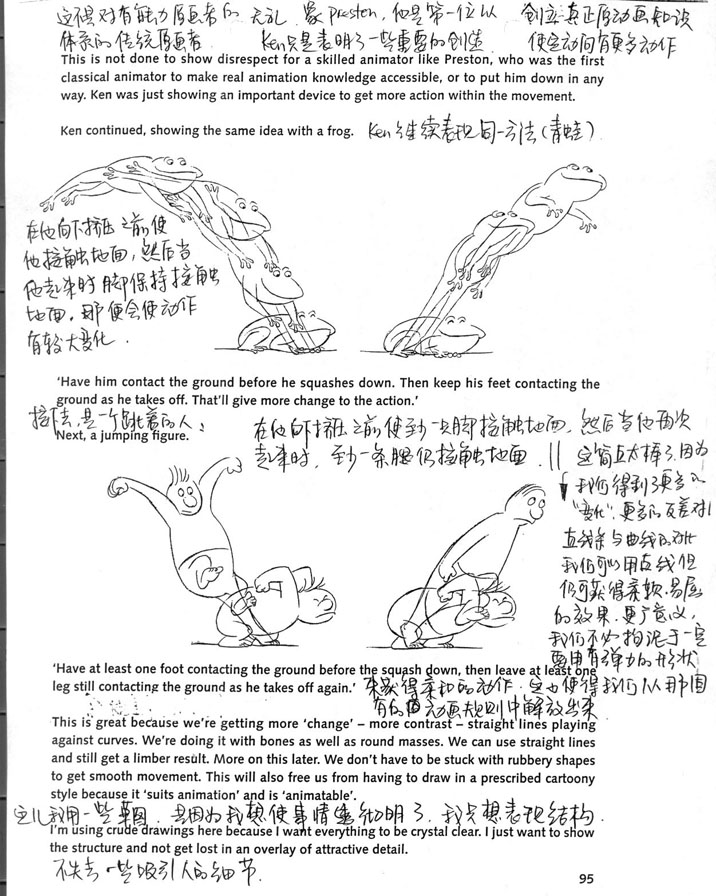 这不是对有能力原画者的 无礼. 象 Preston, 他是第一位以 创立真正原动画知识
体系的传统原画者. Ken只是表明了一些重要的创造. 使运动间有更多动作
This is not done to show disrespect for a skilled animator like Preston, who was the first
classical animator to make real animation knowledge accessible, or to put him down in any
way. Ken was just showing an important device to get more action within the movement.
Ken continued, showing the same idea with a frog. Ken 继续表现同一方法(青蛙)
在他向下挤压之前使
他接触地面, 然后当
他起来时 脚保持接触
地面. 那便会使动作
有较大变化.
'Have him contact the ground before he squashes down. Then keep his feet contacting the
ground as he takes off. That'll give more change to the action.'
接下去, 是一个跳着的人:
Next, a jumping figure.
在他向下挤压之前使至少一只脚接触地面, 然后当他再次
起来时, 至少一条腿仍接触地面.
这简直太棒了, 因为
我们得到了更多的
"变化". 更多的反差对比
直线条与曲线的对比
我们可以用直线但
仍可获得柔软.易屈
的效果.
我们不必拘泥于一定
要用有弹力的形状
'Have at least one foot contacting the ground before the squash down, then leave at least one
leg still contacting the ground as he takes off again.' 来获得柔和的动作. 这也使得我们从那固
有的 动画规则中解放出来
This is great because we're getting more 'change' – more contrast – straight lines playing
against curves. We're doing it with bones as well as round masses. We can use straight lines
and still get a limber result. More on this later. We don't have to be stuck with rubbery shapes
to get smooth movement. This will also free us from having to draw in a prescribed cartoony
style because it 'suits animation' and is 'animatable'.
这儿我用一些草图. 是因为我想使事情透彻明了. 我只想表现结构.
I'm using crude drawings here because I want everything to be crystal clear. I just want to show
the structure and not get lost in an overlay of attractive detail.
不失去一些吸引人的细节.
95